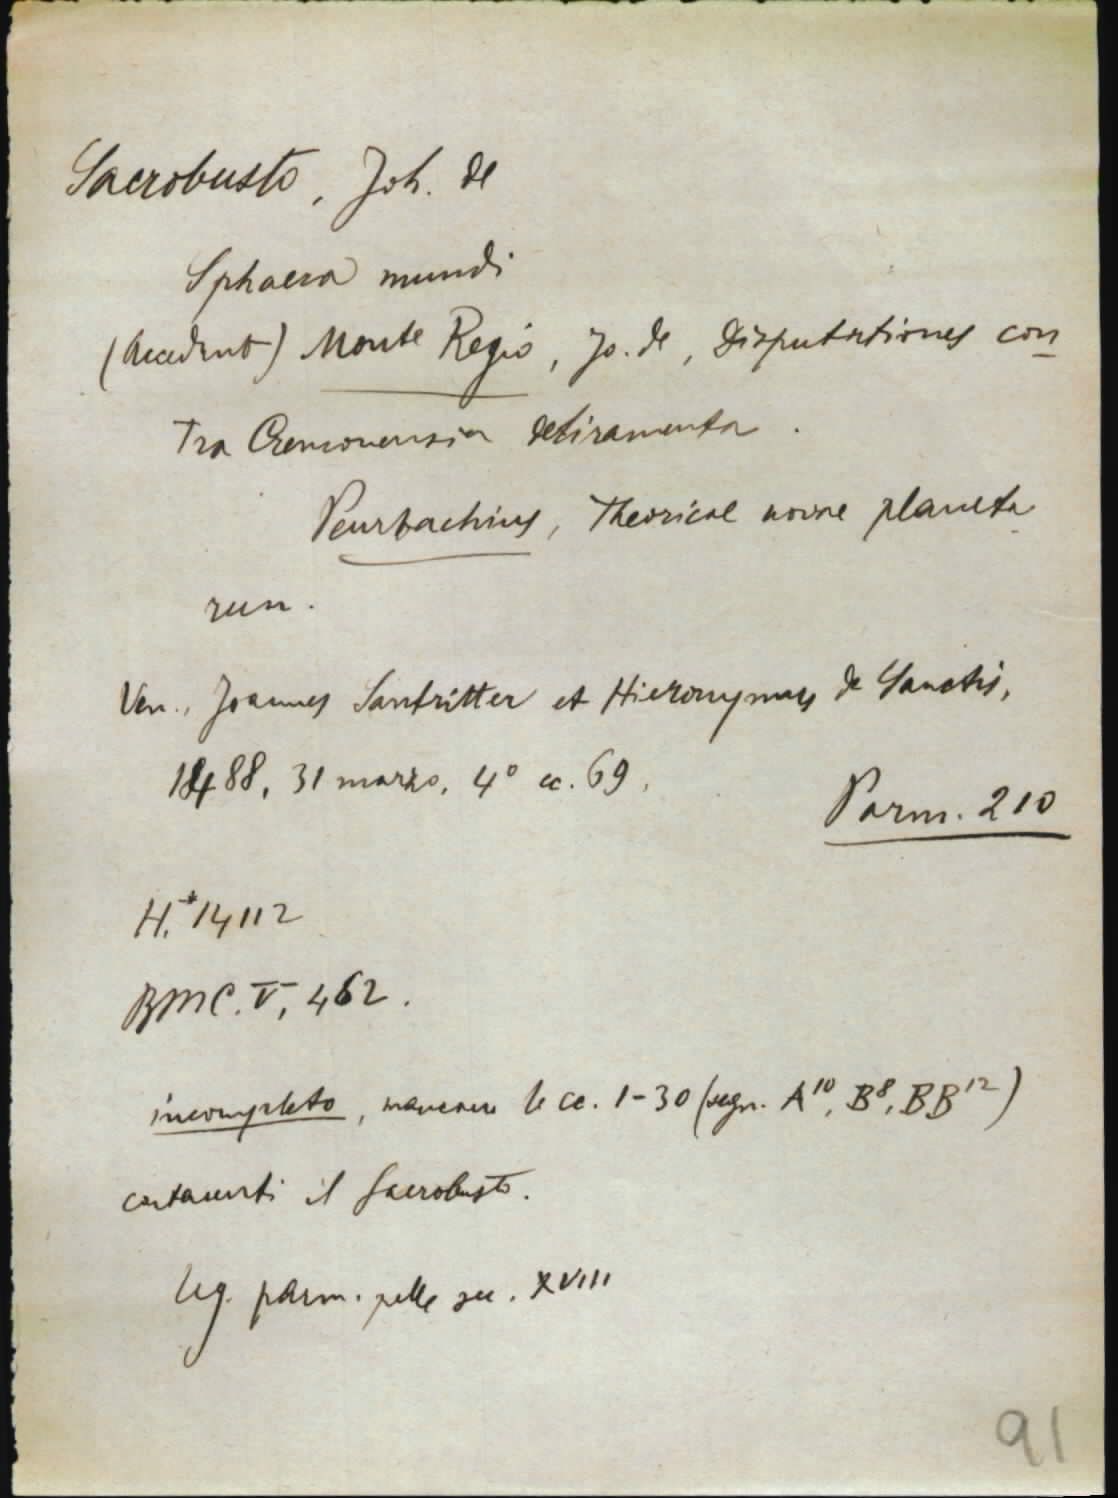 Sacrobusto, Joh. de
Sphaera mundi
(Accedunt) Monte Regio, Jo. de, Disputationes con
tra Cremonensia deliramenta.
Peurbachius, Theoricae novae planeta
rum.
Ven., Joannes Santritter et Hieronymus de Sanctis,
1488, 31 marzo, 4° cc. 69.
Parm. 210
H.*14112
BMC. V, 462.
incompleto, mancano le cc. 1-30 (segn. A¹⁰, B⁸, BB¹²)
contenenti il Sacrobusto.
Leg. parm. pelle sec. XVIII
91